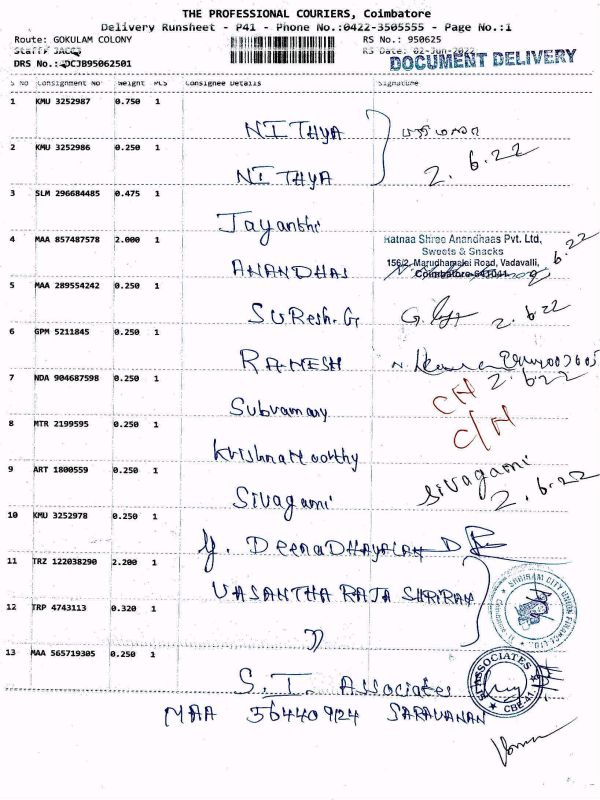 THE PROFESSIONAL COURIERS, Coimbatore
Delivery Runsheet - P41 - Phone No.:0422-3505555 - Page No.:1
Route: GOKULAM COLONY RS No.: 950625
RS Date: 02-Jun-2022
DRS No.: DCJB95062501
DOCUMENT DELIVERY
S No Consignment No Weight PCS Consignee Details Signature
1 KMU 3252987 0.750 1
NITHYA
2.6.22
2 KMU 3252986 0.250 1
NITHYA
3 SLM 296684485 0.475 1
Jayanthi
4 MAA 857487578 2.000 1
ANANDHAS
Ratnaa Shree Anandhaas Pvt. Ltd,
Sweets & Snacks
156/2, Marudhamalai Road, Vadavalli,
Coimbatore-641041
2.6.22
5 MAA 289554242 0.250 1
SURESH.G
2.6.22
6 GPM 5211845 0.250 1
RAMESH
2.6.22
7 NDA 904687598 0.250 1
Subramany
C/H
8 MTR 2199595 0.250 1
KrishnaMoorthy
C/H
9 ART 1800559 0.250 1
Sivagami
Sivagami
2.6.22
10 KMU 3252978 0.250 1
Y. DeenaDHAYALAN
11 TRZ 122038290 2.200 1
VASANTHA RAJA SHRIRAM
SHRIRAM CITY UNION FINANCE LTD.
12 TRP 4743113 0.320 1
13 MAA 565719305 0.250 1
S.I. Associates
MAA 564409124 SARAVANAN